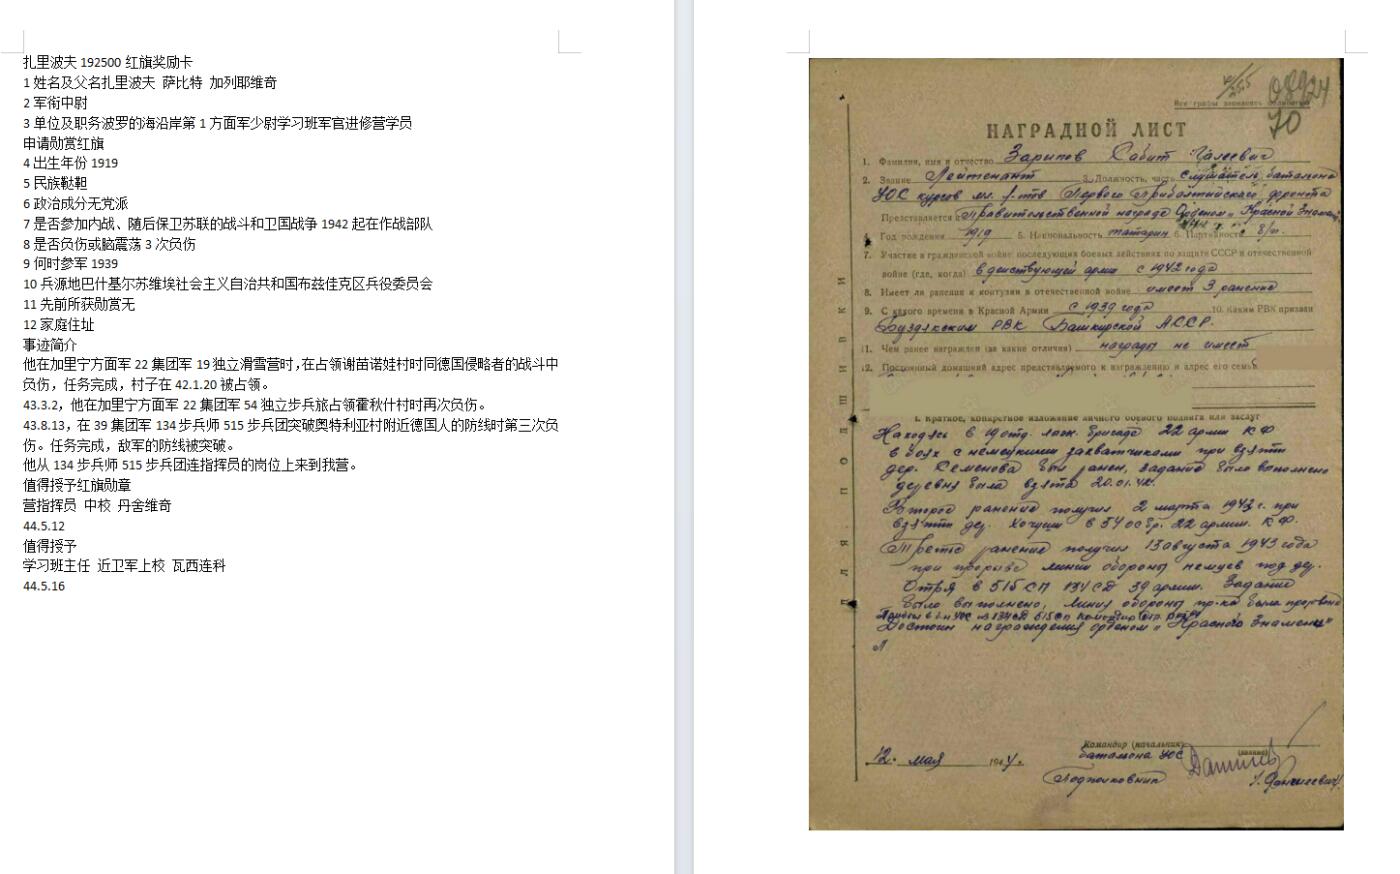 扎里波夫 192500 红旗奖励卡
1 姓名及父名扎里波夫 萨比特 加列耶维奇
2 军衔中尉
3 单位及职务波罗的海沿岸第 1 方面军少尉学习班军官进修营学员
申请勋赏红旗
4 出生年份 1919
5 民族鞑靼
6 政治成分无党派
7 是否参加内战、随后保卫苏联的战斗和卫国战争 1942 起在作战部队
8 是否负伤或脑震荡 3 次负伤
9 何时参军 1939
10 兵源地巴什基尔苏维埃社会主义自治共和国布兹佳克区兵役委员会
11 先前所获勋赏无
12 家庭住址
事迹简介
他在加里宁方面军 22 集团军 19 独立滑雪营时，在占领谢苗诺娃村时同德国侵略者的战斗中
负伤，任务完成，村子在 42.1.20 被占领。
43.3.2，他在加里宁方面军 22 集团军 54 独立步兵旅占领霍秋什村时再次负伤。
43.8.13，在 39 集团军 134 步兵师 515 步兵团突破奥特利亚村附近德国人的防线时第三次负
伤。任务完成，敌军的防线被突破。
他从 134 步兵师 515 步兵团连指挥员的岗位上来到我营。
值得授予红旗勋章
营指挥员 中校 丹舍维奇
44.5.12
值得授予
学习班主任 近卫军上校 瓦西连科
44.5.16
70
НАГРАДНОЙ ЛИСТ
1. Фамилия, имя и отчество Зарипов Сабит Галеевич
2. Звание Лейтенант 3. Должность, часть слушатель батальона
УОС курсов мл. л-тов Первого Прибалтийского фронта
Представляется к Правительственной награде Орденом „Красное Знамя“
4. Год рождения 1919 5. Национальность татарин 6. Партийность б/п.
7. Участие в гражданской войне, последующих боевых действиях по защите СССР и отечественной
войне (где, когда) в действующей армии с 1942 года
8. Имеет ли ранения и контузии в отечественной войне имеет 3 ранения
9. С какого времени в Красной Армии с 1939 года 10. Каким РВК призван
Буздякским РВК Башкирской АССР.
11. Чем ранее награжден (за какие отличия) награды не имеет
12. Постоянный домашний адрес представляемого к награждению и адрес его семьи
I. Краткое, конкретное изложение личного боевого подвига или заслуг
Находясь в 19 отд. лыж. бригаде 22 армии К Ф
в боях с немецкими захватчиками при взятии
дер. Семенова был ранен, задание было выполнено
деревня была взята 20.01.42.
Второе ранение получил 2 марта 1943 г. при
взятии дер. Хочуши в 54 осбр. 22 армии. К Ф.
Третье ранение получил 13 августа 1943 года
при прорыве линии обороны немцев под дер.
Отря в 515 СП 134 СД 39 армии. Задание
было выполнено, линия обороны пр-ка была прорвана
Достоин награждения орденом „Красное Знамени“
Командир (начальник)
батальона УОС (звание)
12. мая 1944 г.
Подполковник
ДЛЯ ПОДШИВКИ